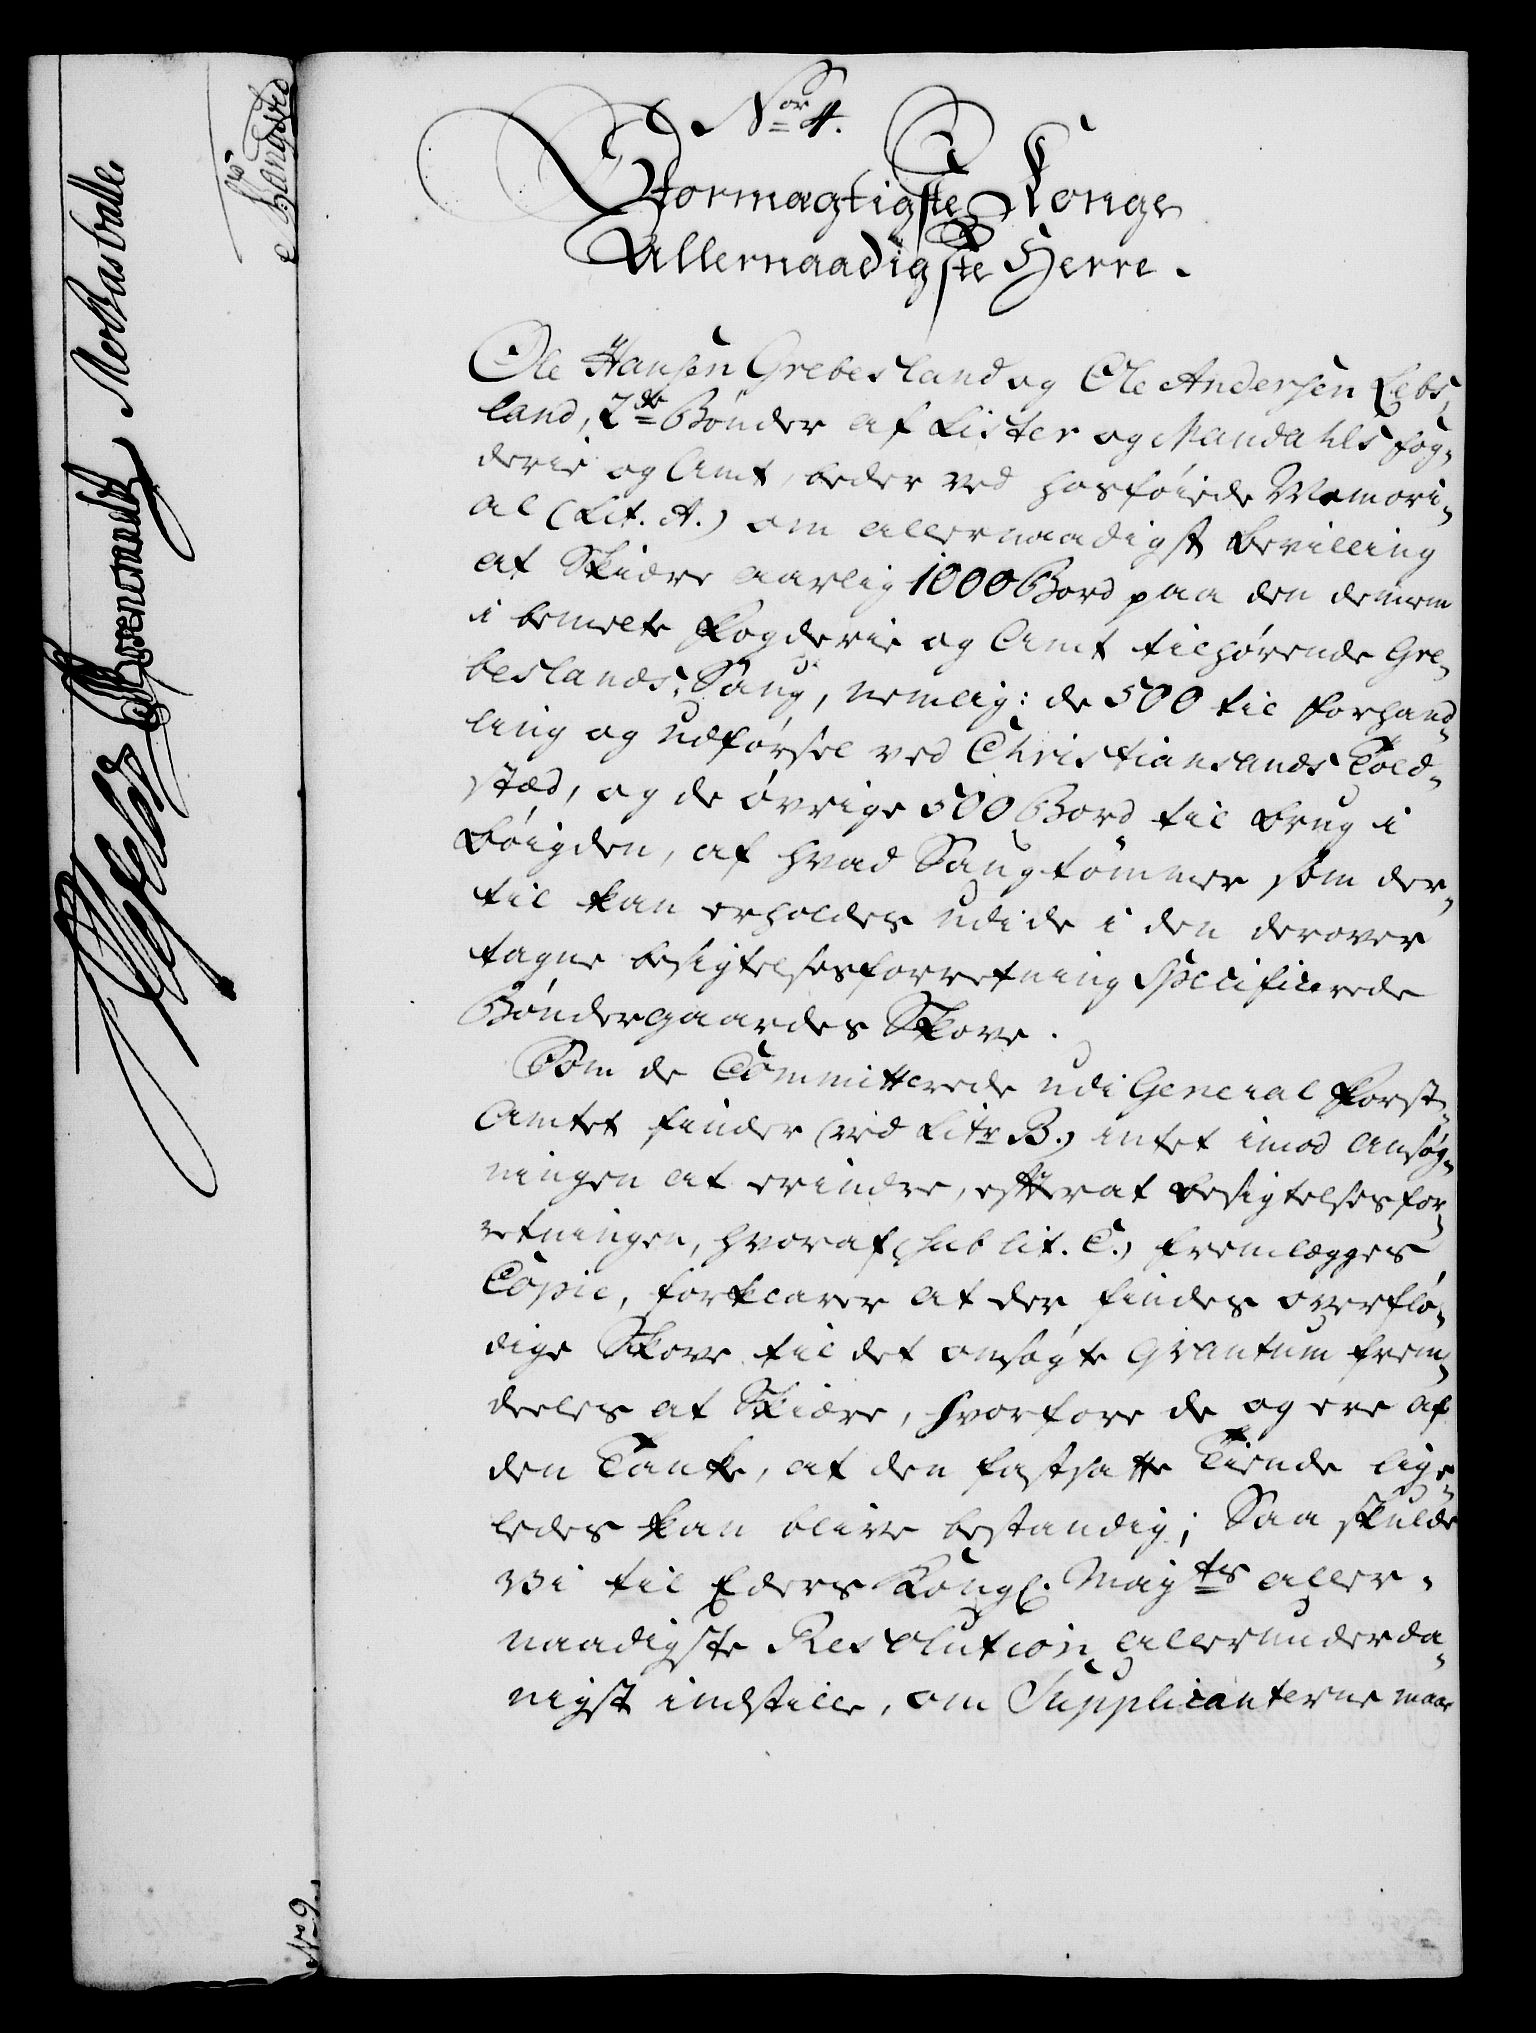 Nor 4.
Stormagtigste Konge
Allernaadigste Herre.
Ole Hansen Grebesland og Ole Andersen Eebs,
land, 2de Bønder af Lister og Mandahls fog,
derie og Amt, beder ved hosføiede Memori,
al (Lit. A.) om allernaadigst bevilling
at Skiære aarlig 1000 Bord paa den dennem
i bemelte Fogderie og Amt tilhørende Gre,
beslands, Saug, nemlig: de 500 til forhand,
ling og udførsel ved Christiansands Told,
stæd, og de øvrige 500 Bord til brug i
bøigden, af hvad Saugtømmer som der,
til kan erholdes udi de i den derover
tagne besigtelsesforretning Specificerede
Bøndergaardes Skove.
Som de Committerede udi General Forst,
Amtet finder (ved Litr B.) intet imod ansøg,
ningen at erindre, efterat besigtelsesfor,
retningen, hvoraf (sub lit. C.) fremlægges
Copie, forklarer at der findes overflø,
dige Skove til det ansøgte Qvantum frem,
deeles at Skiære, hvorfore de og ere af
den Tanke, at den fastsatte Tiende lige,
ledes kan blive bestandig; Saa skulde
vi til Eders Kongl. Mayts aller,
naadigste Resolution allerunderda,
nigst indstille, om Supplicanterne maae
No 9.